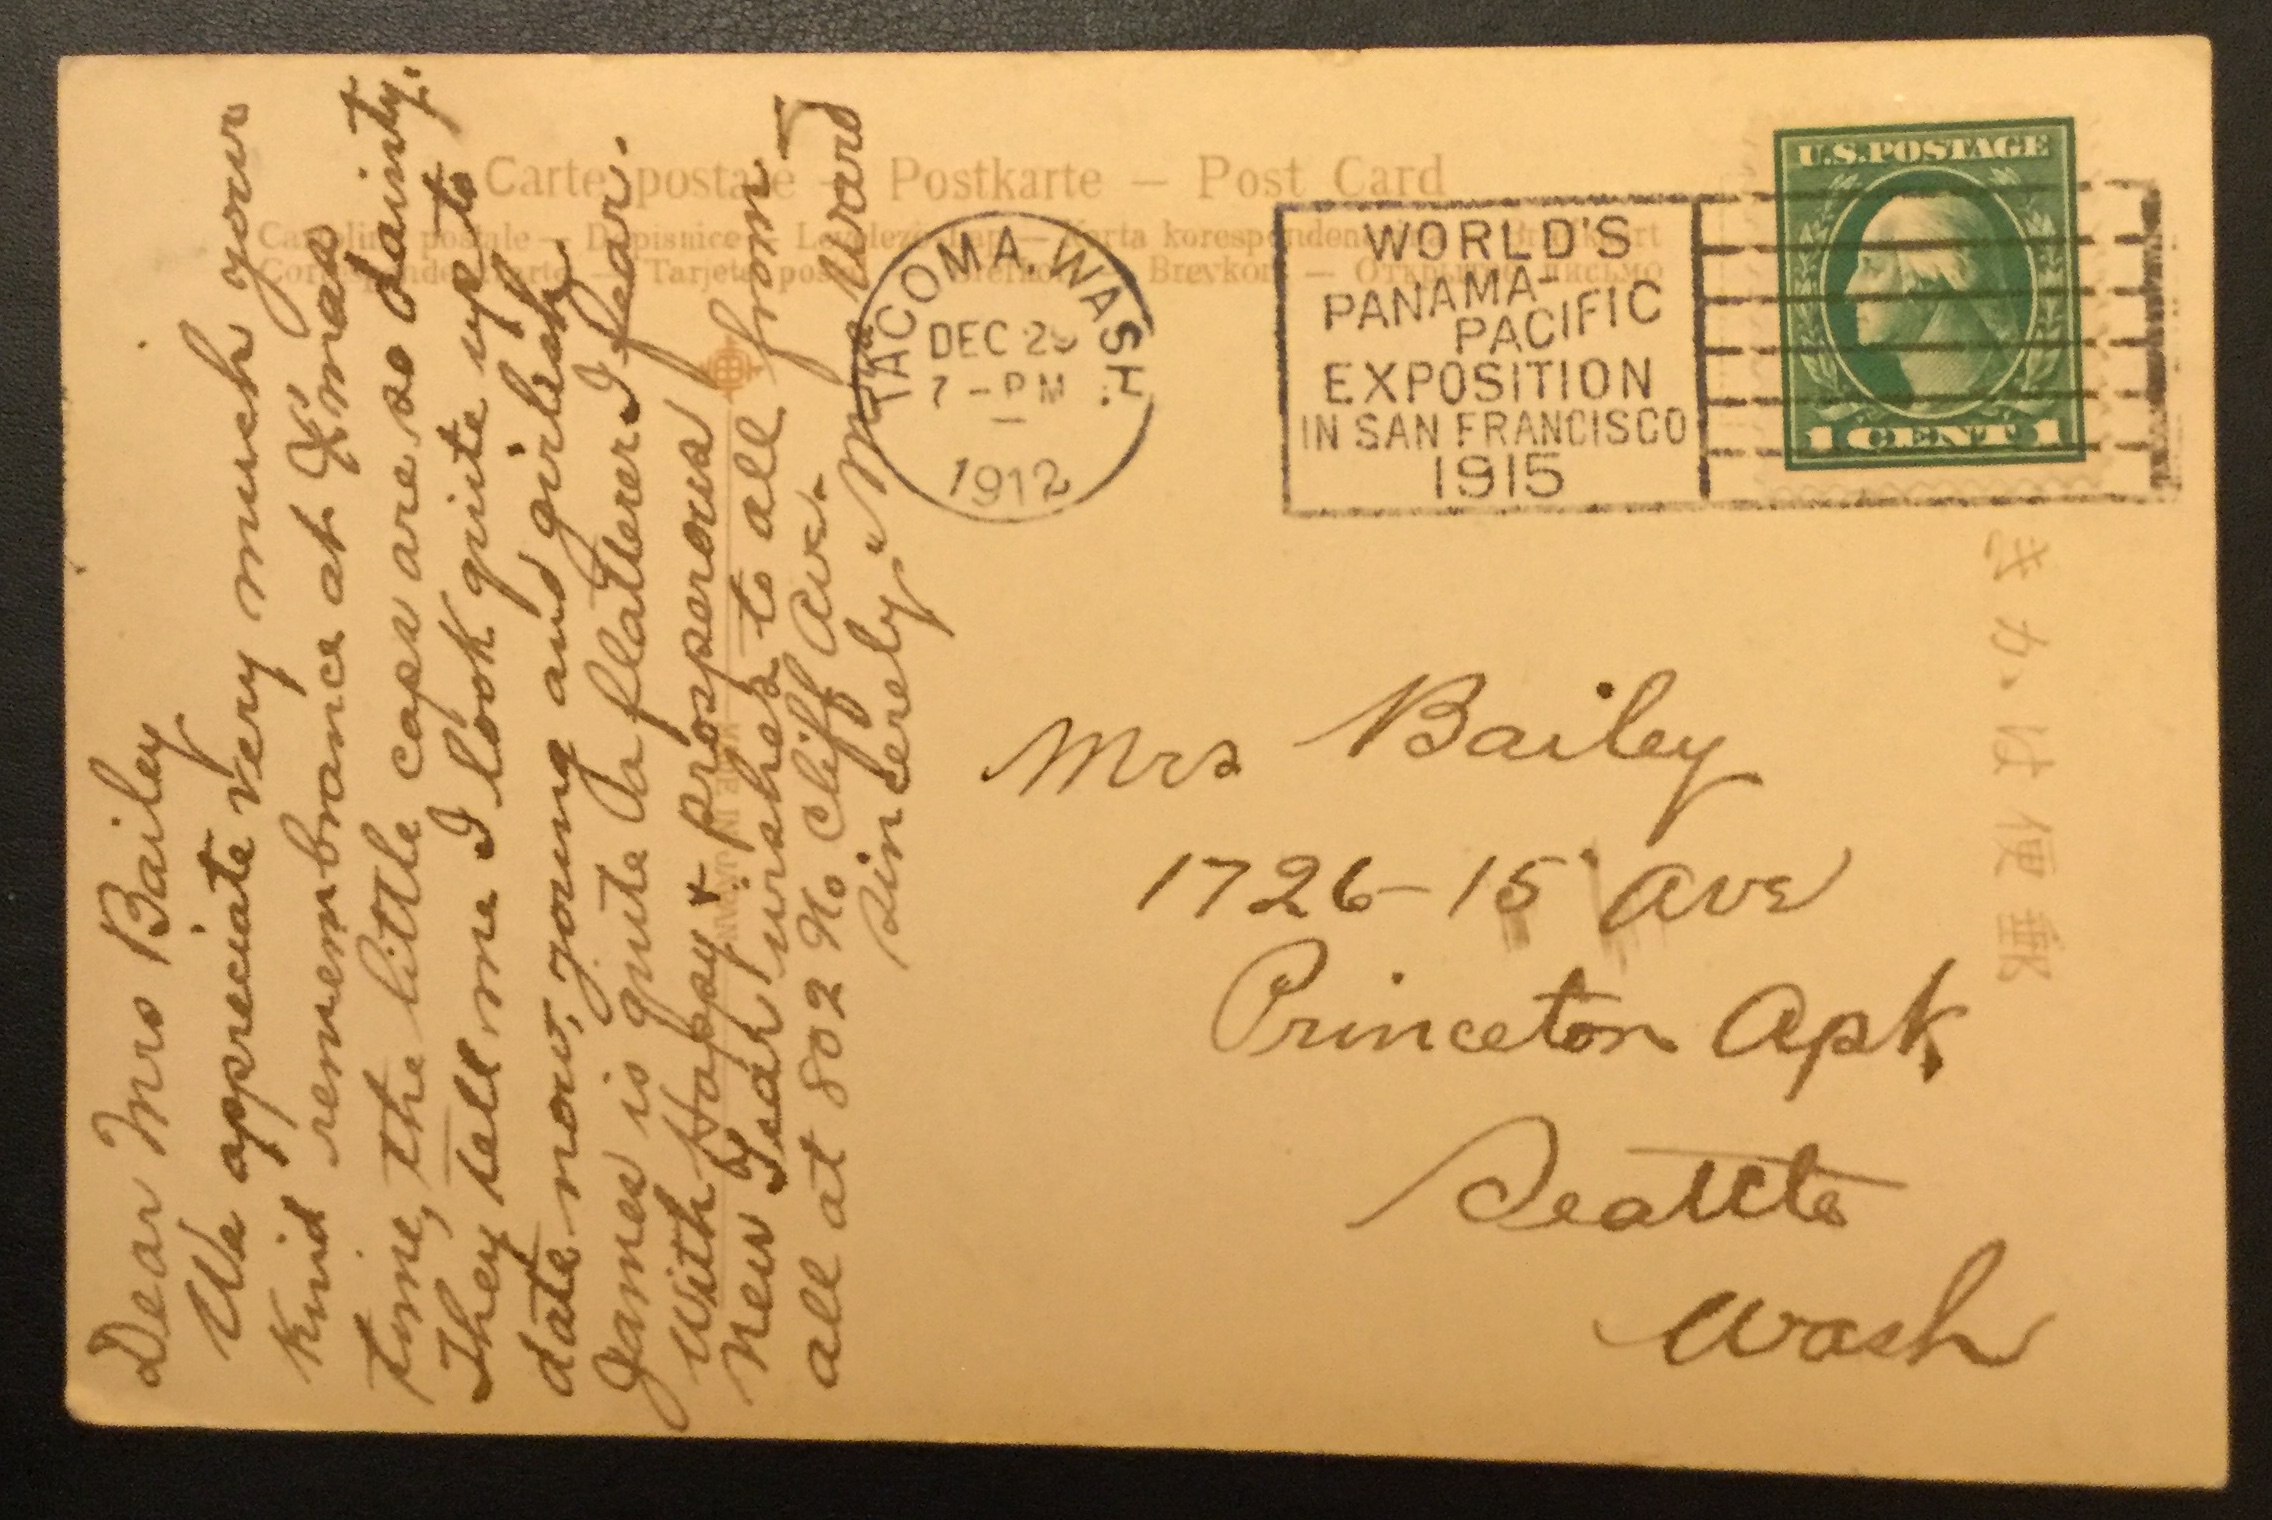 Carte postale — Postkarte — Post Card
Cartolina postale — Dopisnice — Levelező-Lap — Karta korespondencyjna — Briefkaart
Correspondenzkarte — Tarjeta postal — Brefkort — Brevkort — Открытое письмо
TACOMA, WASH.
DEC 29
7-PM
1912
WORLD'S
PANAMA-
PACIFIC
EXPOSITION
IN SAN FRANCISCO
1915
U.S. POSTAGE
1 CENT 1
Dear Mrs Bailey
We appreciate very much your
kind remembrance at X'mas
time, the little caps are so dainty.
They tell me I look quite up to
date now, young and girlish.
James is quite a flatterer I fear.
With Happy & prosperous
New Year wishes to all from
all at 802 No Cliff Ave.
Sincerely, Mrs Ward
MADE IN JAPAN
Mrs Bailey
1726-15 Ave
Princeton Apt
Seattle
Wash
郵便はかき